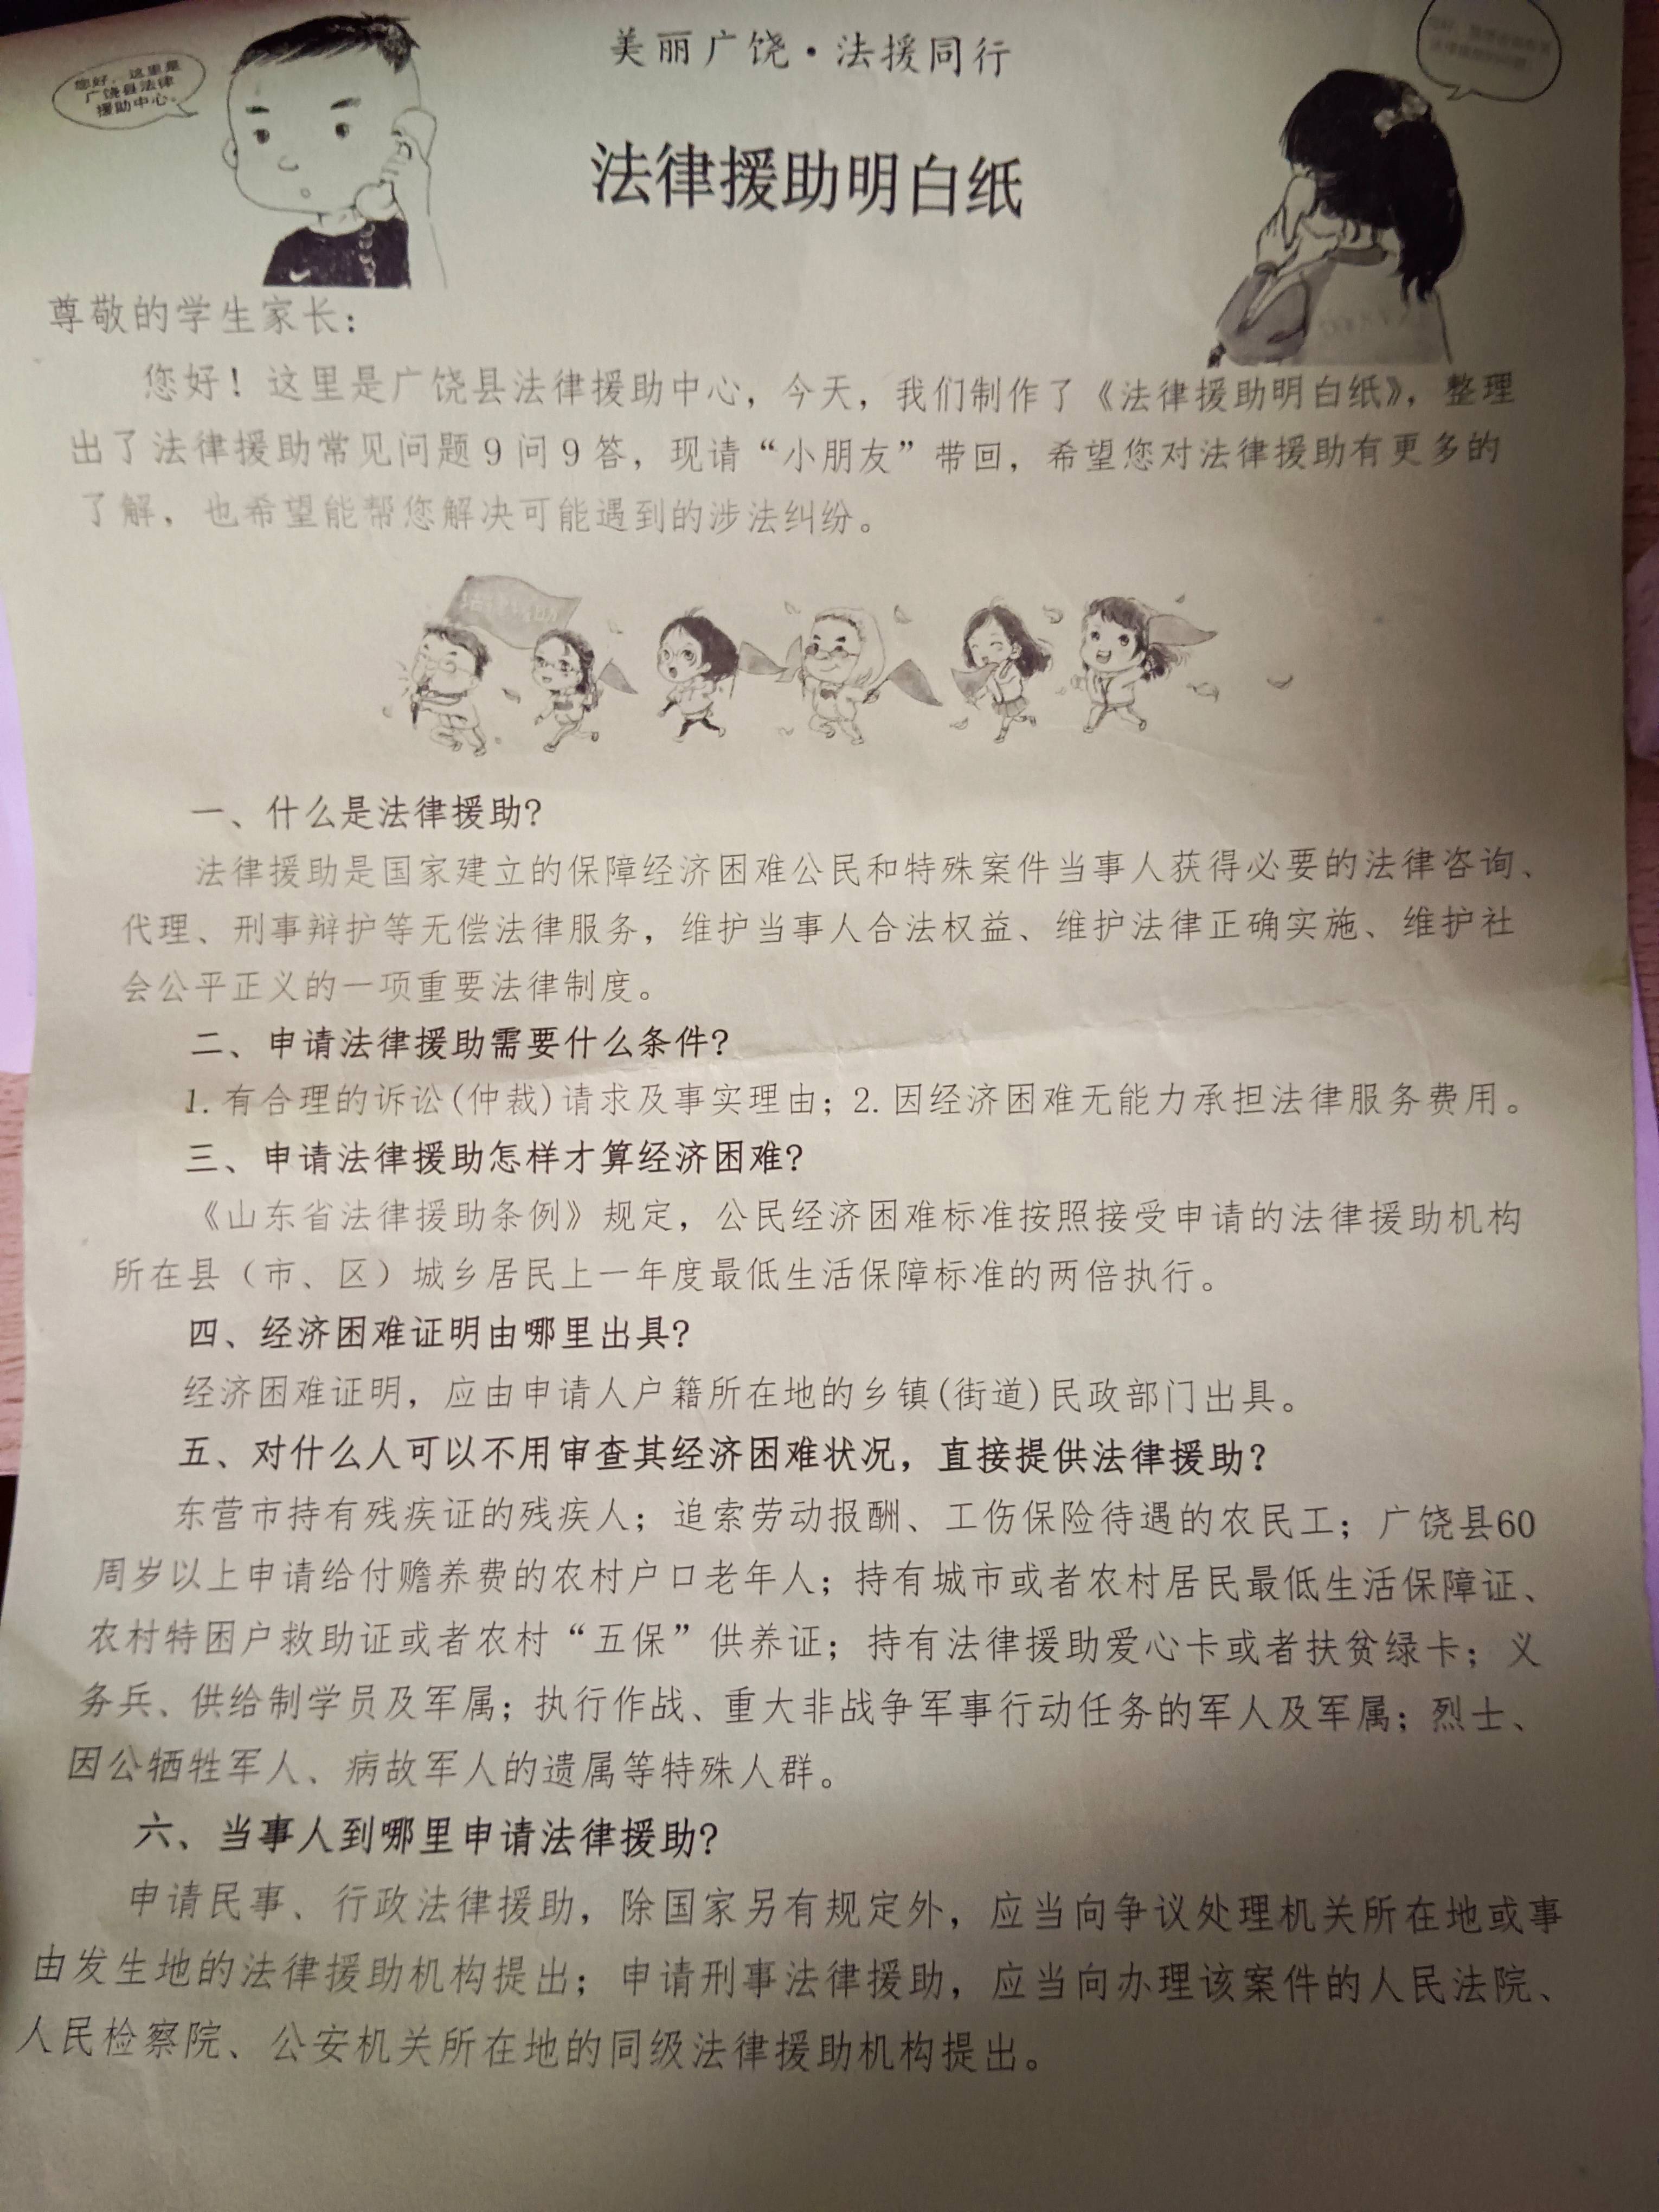 美丽广饶·法援同行
您好，这里是
广饶县法律
援助中心。
法律援助明白纸
尊敬的学生家长：
您好！这里是广饶县法律援助中心，今天，我们制作了《法律援助明白纸》，整理
出了法律援助常见问题9问9答，现请“小朋友”带回，希望您对法律援助有更多的
了解，也希望能帮您解决可能遇到的涉法纠纷。
一、什么是法律援助？
法律援助是国家建立的保障经济困难公民和特殊案件当事人获得必要的法律咨询、
代理、刑事辩护等无偿法律服务，维护当事人合法权益、维护法律正确实施、维护社
会公平正义的一项重要法律制度。
二、申请法律援助需要什么条件？
1.有合理的诉讼(仲裁)请求及事实理由；2.因经济困难无能力承担法律服务费用。
三、申请法律援助怎样才算经济困难？
《山东省法律援助条例》规定，公民经济困难标准按照接受申请的法律援助机构
所在县（市、区）城乡居民上一年度最低生活保障标准的两倍执行。
四、经济困难证明由哪里出具？
经济困难证明，应由申请人户籍所在地的乡镇(街道)民政部门出具。
五、对什么人可以不用审查其经济困难状况，直接提供法律援助？
东营市持有残疾证的残疾人；追索劳动报酬、工伤保险待遇的农民工；广饶县60
周岁以上申请给付赡养费的农村户口老年人；持有城市或者农村居民最低生活保障证、
农村特困户救助证或者农村“五保”供养证；持有法律援助爱心卡或者扶贫绿卡；义
务兵、供给制学员及军属；执行作战、重大非战争军事行动任务的军人及军属；烈士、
因公牺牲军人、病故军人的遗属等特殊人群。
六、当事人到哪里申请法律援助？
申请民事、行政法律援助，除国家另有规定外，应当向争议处理机关所在地或事
由发生地的法律援助机构提出；申请刑事法律援助，应当向办理该案件的人民法院、
人民检察院、公安机关所在地的同级法律援助机构提出。